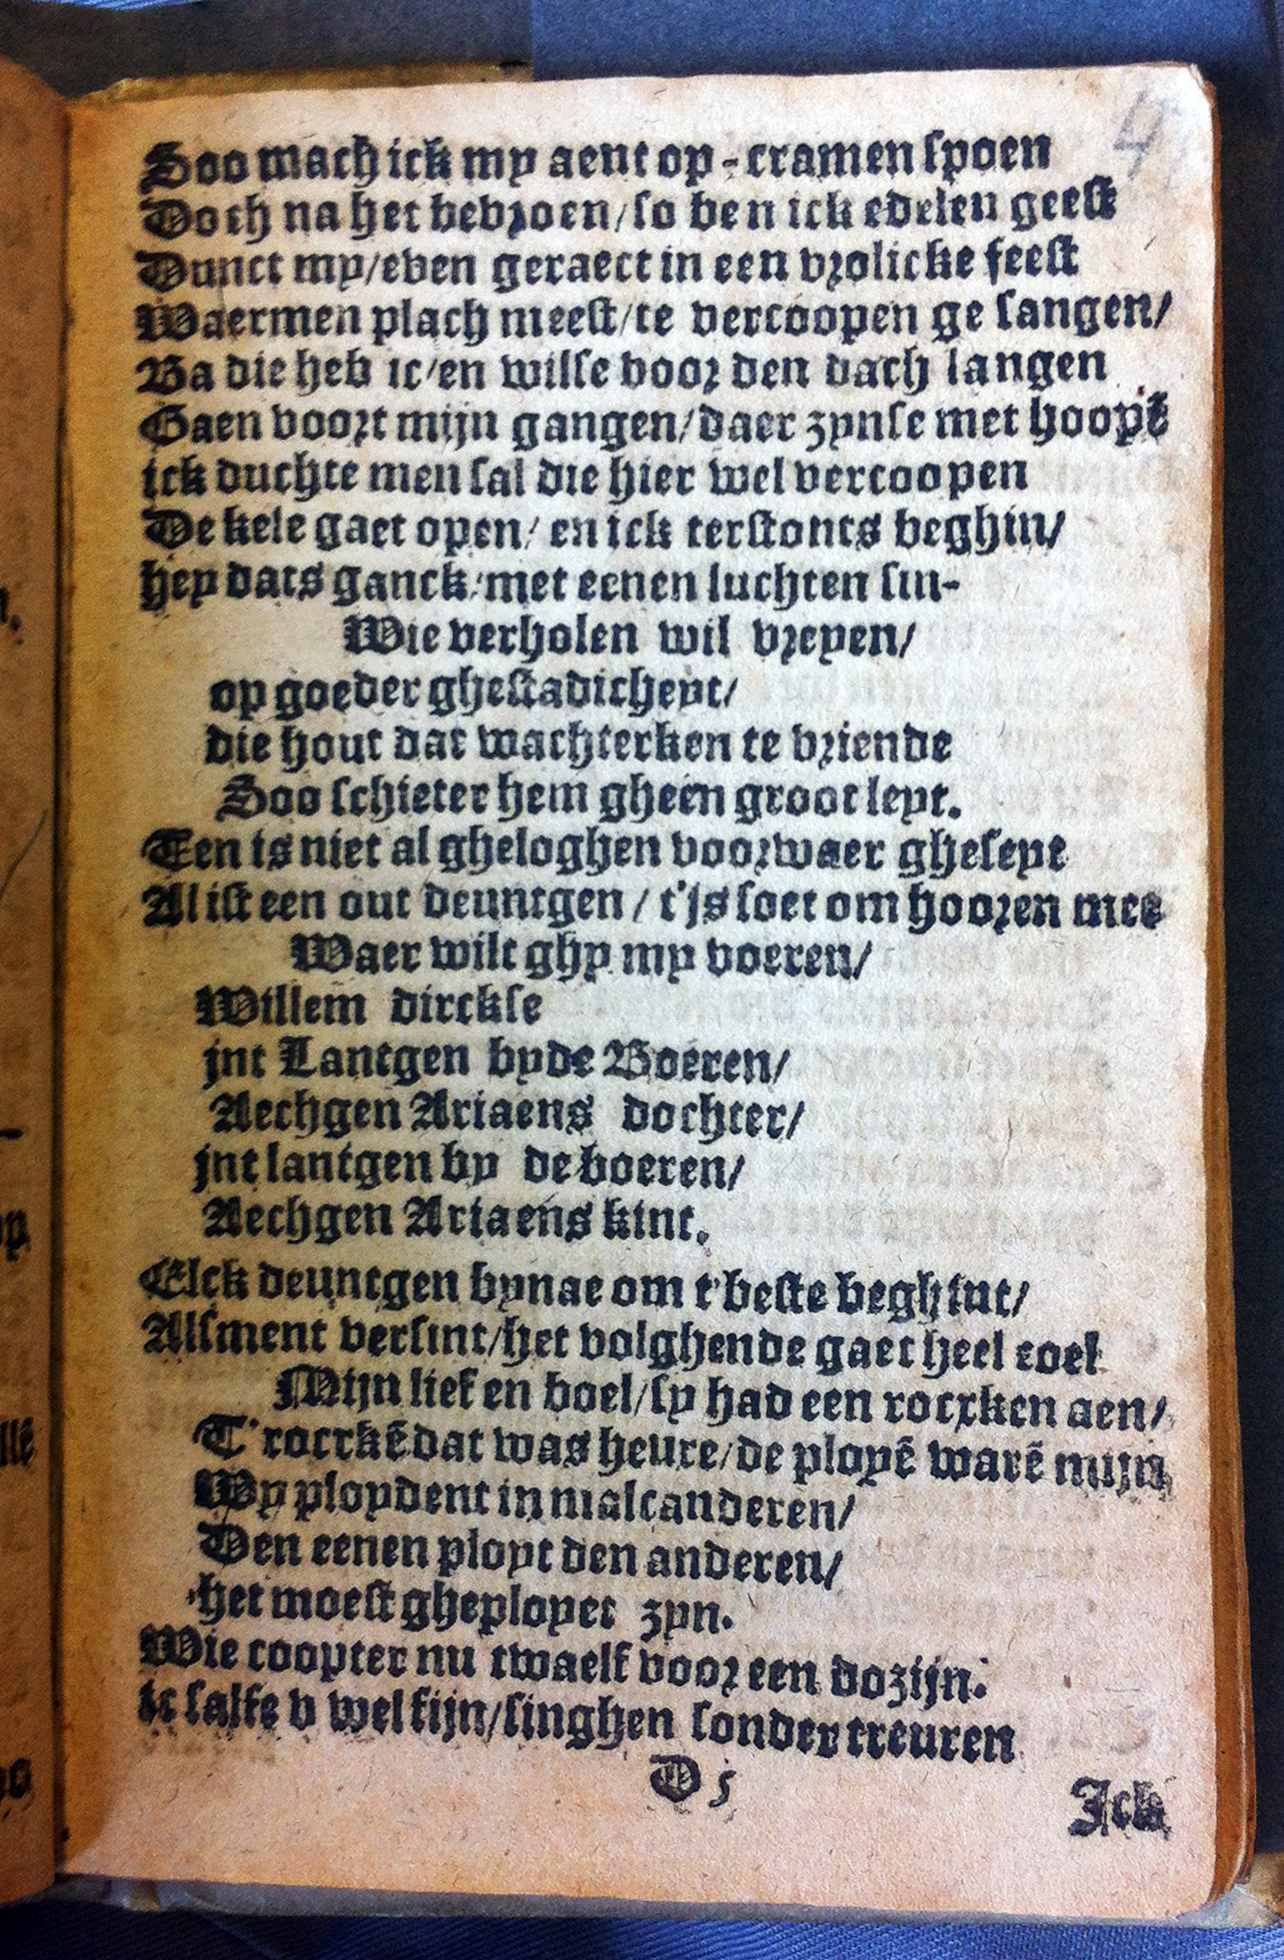 4
Soo mach ick my aent op-cramen spoen
Doch na het bevroen/so ben ick edelen geest
Dunct my/even geraect in een vrolicke feest
Waermen plach meest/te vercoopen ge sangen/
Ba die heb ic/en wilse voor den dach langen
Gaen voort mijn gangen/daer zynse met hoopẽ
ick duchte men sal die hier wel vercoopen
De kele gaet open/ en ick terstonts beghin/
hey dats ganck/met eenen luchten sin-
Wie verholen wil vryen/
op goeder ghestadicheyt/
die hout dat wachterken te vriende
Soo schieter hem gheen groot leyt.
Ten is niet al gheloghen voorwaer gheseyt
Al ist een out deuntgen / t'js soet om hooren mee
Waer wilt ghy my voeren/
Willem dirckse
jnt Lantgen byde Boeren/
Aechgen Ariaens dochter/
jnt lantgen by de boeren/
Aechgen Ariaens kint.
Elck deuntgen bynae om t'beste beghint/
Alsment versint/het volghende gaet heel coel
Mijn lief en boel/sy had een rocxken aen/
T'rocxkẽ dat was heure/de ployẽ warẽ mijn
Wy ploydent in malcanderen/
Den eenen ployt den anderen/
het moest gheployet zyn.
Wie coopter nu twaelf voor een dozijn.
ic salse v wel fijn/singhen sonder treuren
D 5
Ick